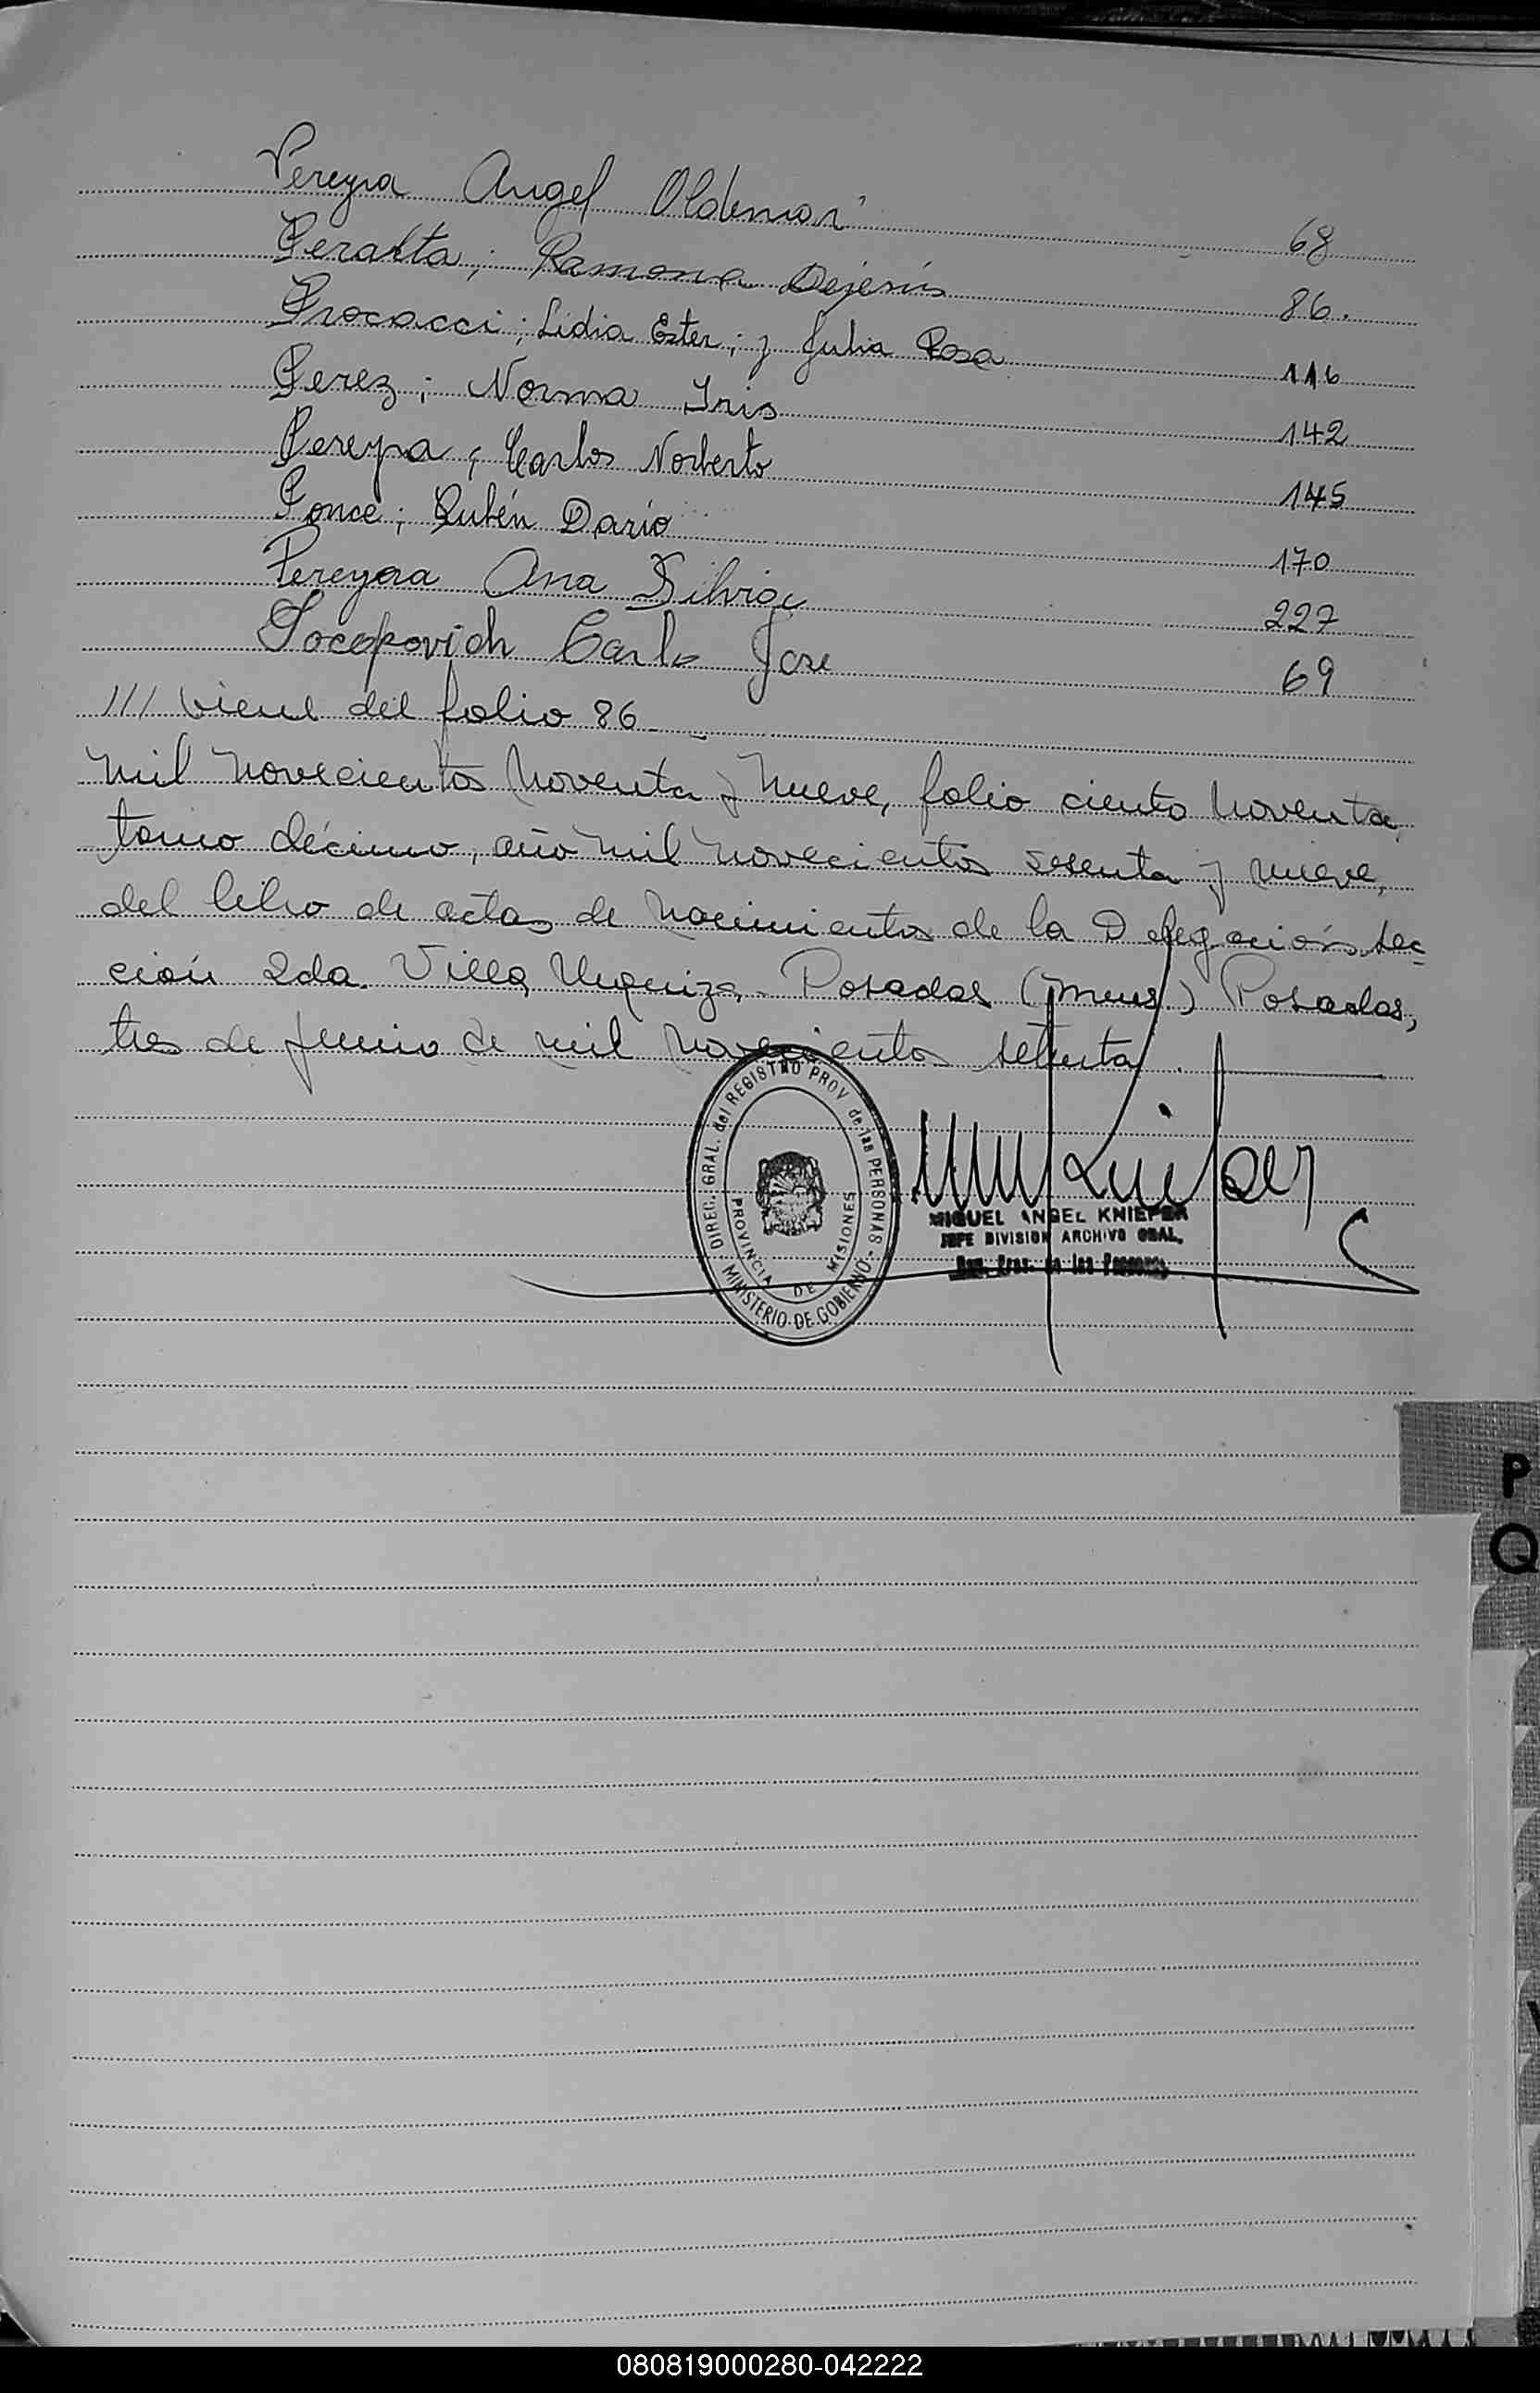 Pereyra Angel Oldemar 68
Peralta; Ramona Dejesús 86.
Procacci; Lidia Ester; y Julia Rosa 116
Perez; Norma Iris 142
Pereyra; Carlos Norberto 145
Ponce; Rubén Dario 170
Pereyra Ana Silvia 227
Pocopovich Carlos Jose 69
/// viene del folio 86
mil novecientos noventa y nueve, folio ciento noventa
tomo décimo, año mil novecientos sesenta y nueve,
del libro de actas de nacimientos de la Delegación Sec
ción 2da. Villa Urquiza. Posadas (Mnes.) Posadas,
tres de junio de mil novecientos setenta.
DIREC. GRAL. del REGISTRO PROV de las PERSONAS
PROVINCIA DE MISIONES
MINISTERIO DE GOBIERNO
MIGUEL ANGEL KNIEPER
JEFE DIVISION ARCHIVO GRAL.
de las Personas
P
Q
080819000280-042222